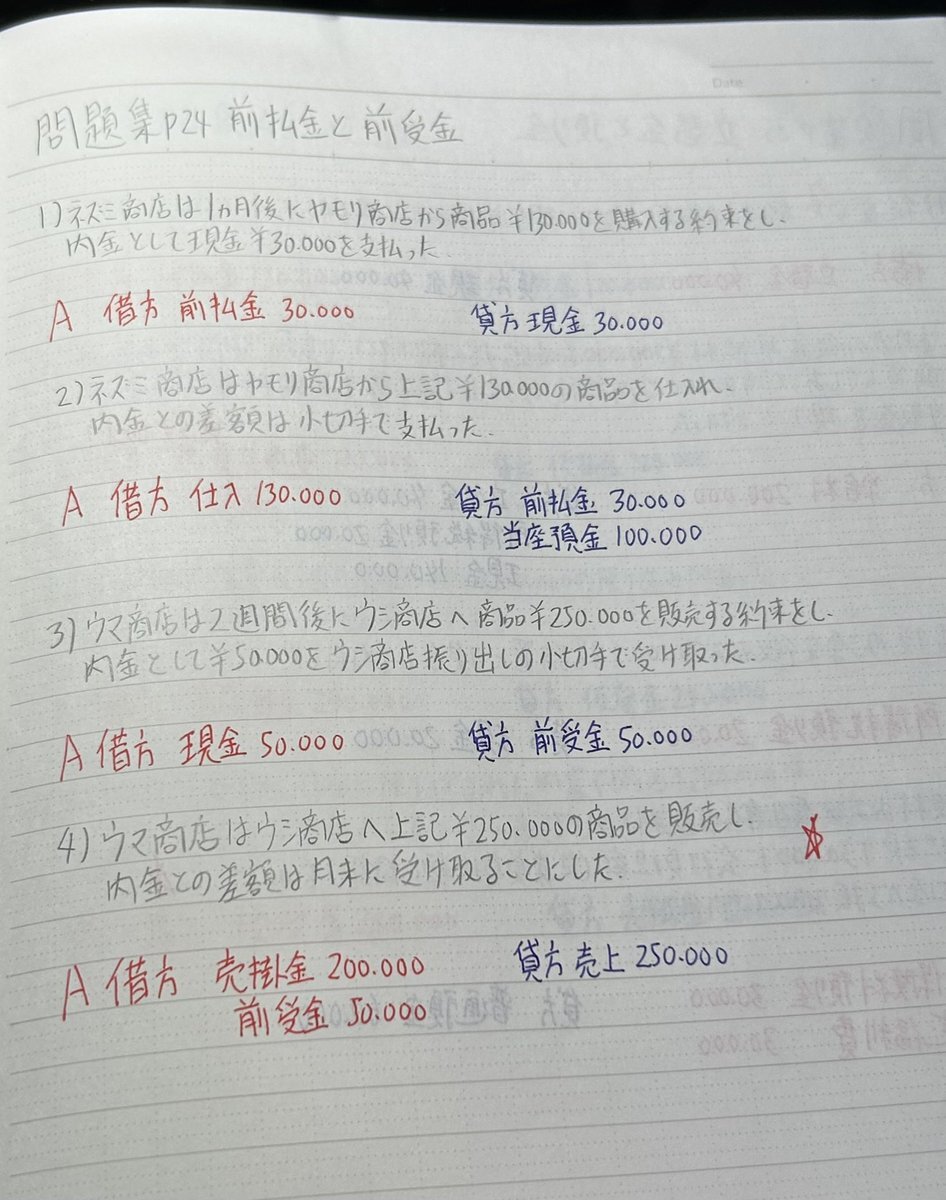 Date
問題集P24 前払金と前受金
1)ネズミ商店は1ヵ月後にヤモリ商店から商品¥130.000を購入する約束をし.
内金として現金¥30.000を支払った.
A 借方 前払金 30.000 貸方 現金 30.000
2)ネズミ商店はヤモリ商店から上記¥130.000の商品を仕入れ.
内金との差額は小切手で支払った.
A 借方 仕入 130.000 貸方 前払金 30.000
当座預金 100.000
3)ウマ商店は2週間後にウシ商店へ商品¥250.000を販売する約束をし.
内金として¥50.000をウシ商店振り出しの小切手で受け取った.
A 借方 現金 50.000 貸方 前受金 50.000
4)ウマ商店はウシ商店へ上記¥250.000の商品を販売し.
内金との差額は月末に受け取ることにした.
A 借方 売掛金 200.000 貸方 売上 250.000
前受金 50.000